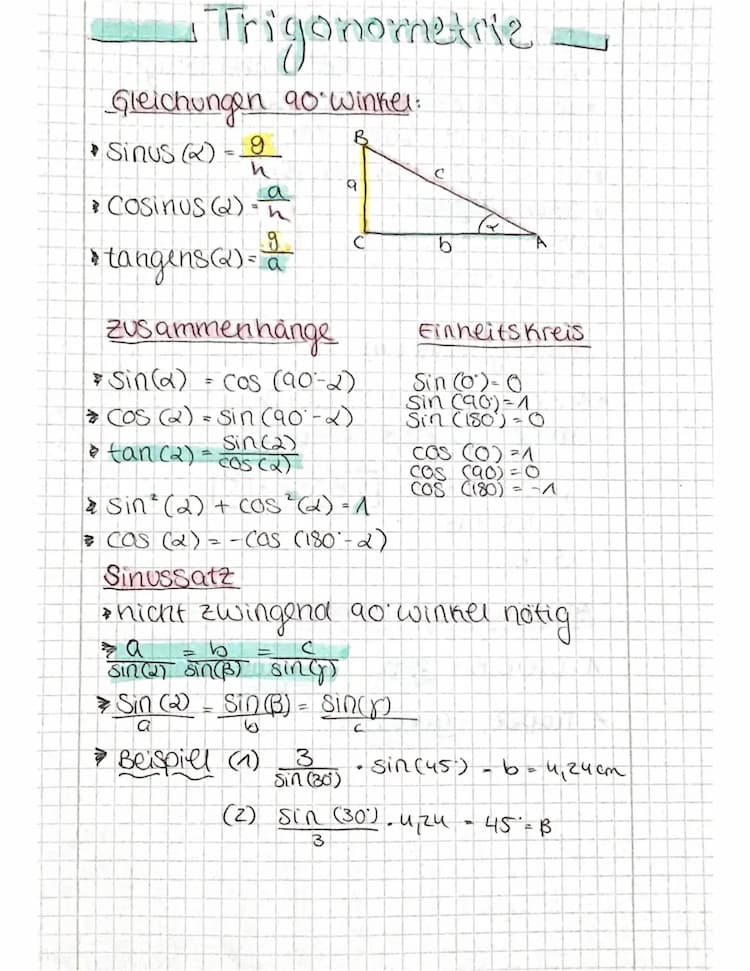 Trigonometrie
Gleichungen 90° Winkel:
sinus(α) = g/h
cosinus(α) = a/h
tangens(α) = g/a
B
a
c
C
b
α
A
Zusammenhänge
sin(α) = cos (90°-α)
cos (α) = sin(90°-α)
tan(α) = sin(α)/cos(α)
sin²(α) + cos²(α) = 1
cos (α) = -cos (180°-α)
Einheitskreis
sin(0°) = 0
sin (90°) = 1
sin (180°) = 0
cos (0) = 1
cos (90) = 0
cos (180) = -1
Sinussatz
nicht zwingend 90° Winkel nötig
a/sin(α) = b/sin(β) = c/sin(γ)
sin(α)/a = sin(β)/b = sin(γ)/c
Beispiel (1) 3/sin(30°) · sin(45°) = b = 4,24cm
(2) sin(30°)/3 · 4,24 = 45° = β